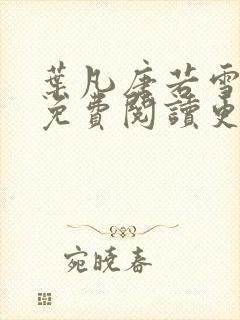 葉凡唐若雪
免費閱讀更
宛曉春